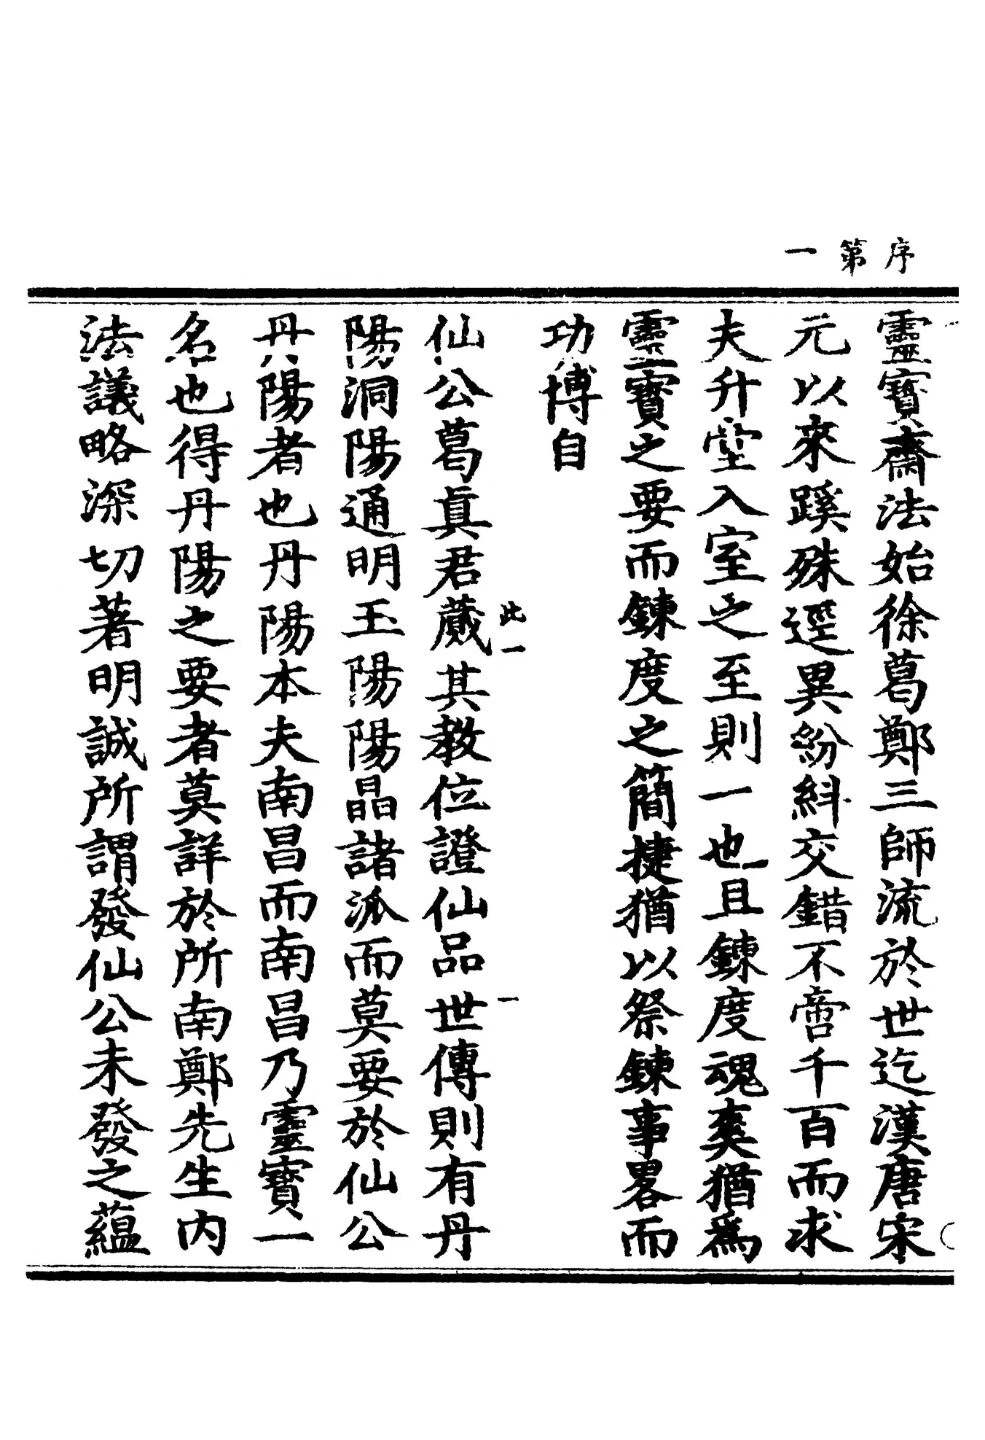 序第一
靈寶齋法始徐葛鄭三師流於世迄漢唐宋
元以來蹊殊逕異紛紏交錯不啻千百而求
夫升堂入室之至則一也且鍊度魂爽猶爲
靈寶之要而鍊度之簡捷猶以祭鍊事畧而
功博自
仙公葛眞君蕆其教位證仙品世傳則有丹
此一
一
陽洞陽通明玉陽陽晶諸派而莫要於仙公
丹陽者也丹陽本夫南昌而南昌乃靈寶一
名也得丹陽之要者莫詳於所南鄭先生内
法議略深切著明誠所謂發仙公未發之蘊